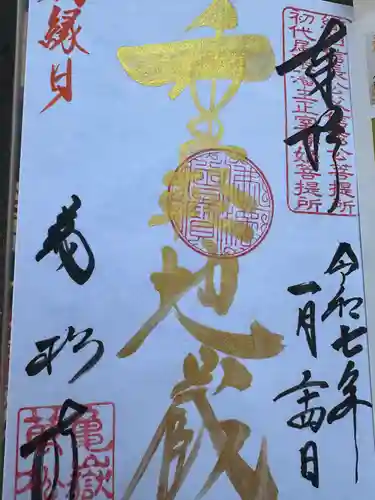 奉拝
初代尾張藩主正室春姫菩提所
令和七年
一月二十四日
重軽地蔵
縁日
萬松寺
亀嶽
萬松